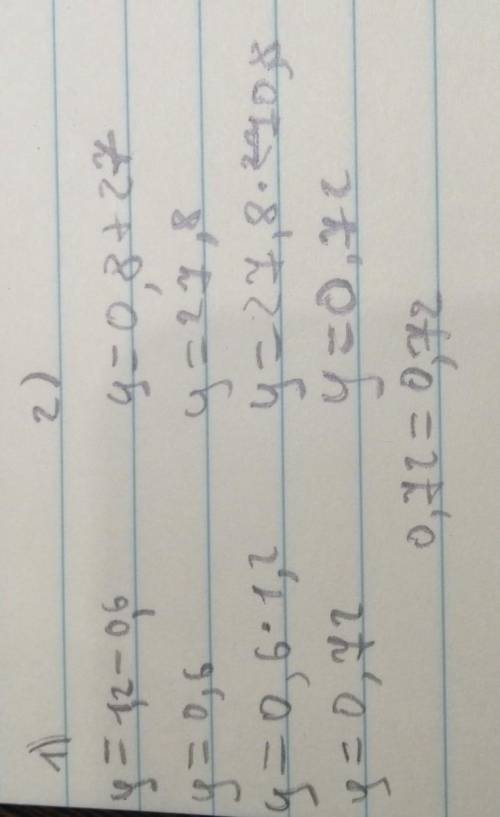 1)
y = 1,2 - 0,6
y = 0,6
y = 0,6 · 1,2
y = 0,72
2)
y = 0,8 + 27
y = 27,8
y = 27,8 · 0,8
y = 0,72
0,72 = 0,72